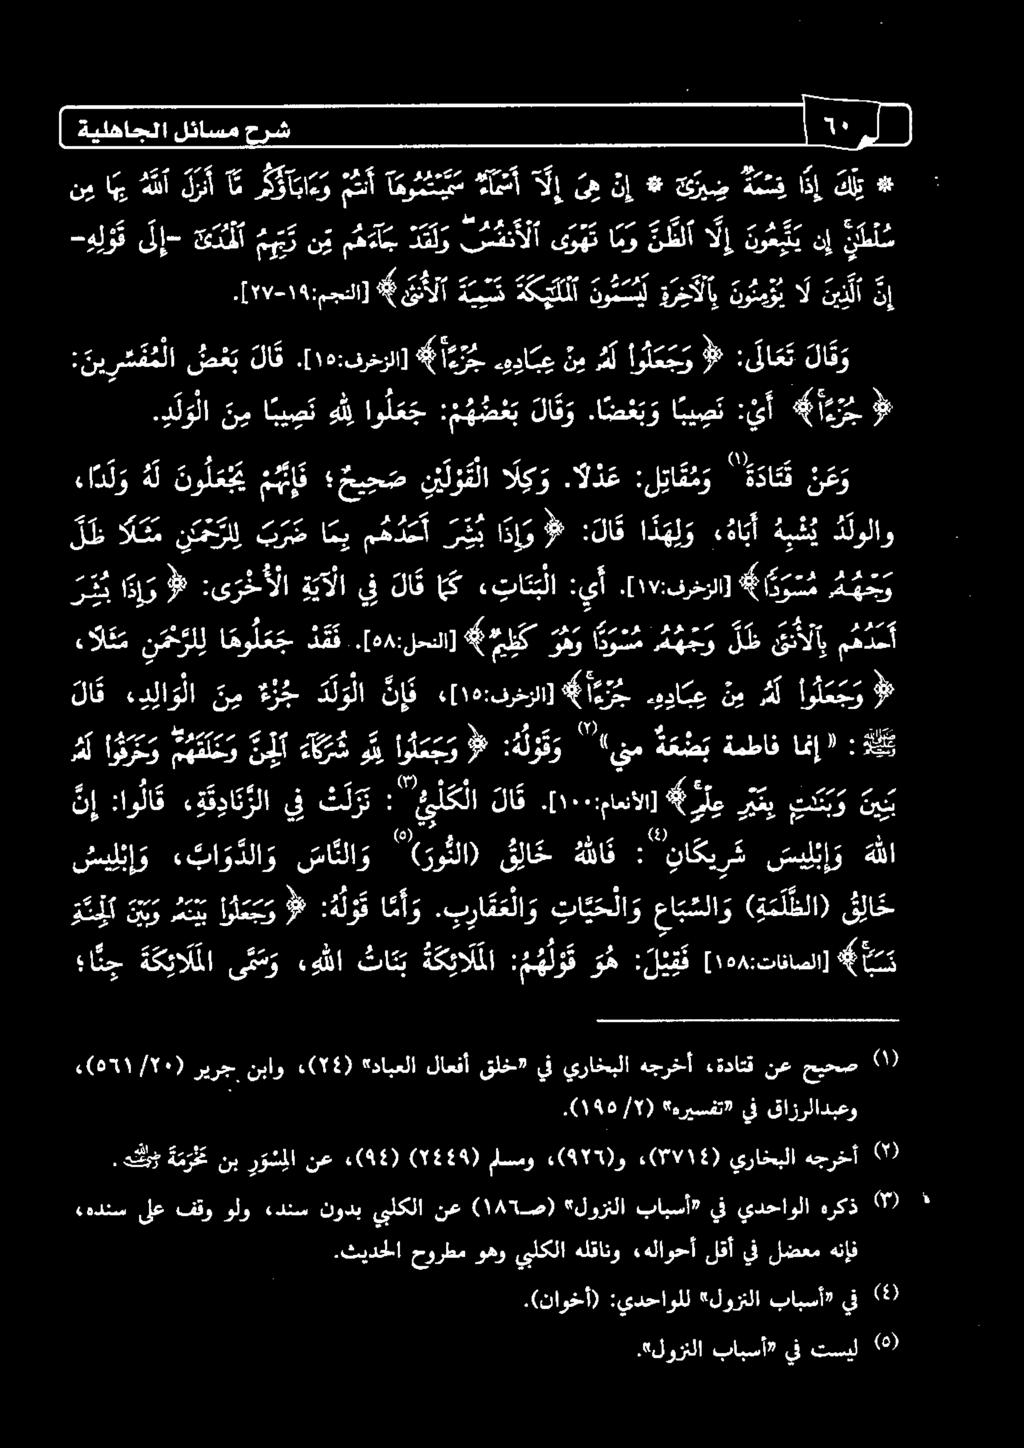 ٦٠
شرح مسائل الجاهلية
* تِلْكَ إِذًا قِسْمَةٌ ضِيزَىٰٓ * إِنْ هِىَ إِلَّآ أَسْمَآءٌ سَمَّيْتُمُوهَآ أَنتُمْ وَءَابَآؤُكُم مَّآ أَنزَلَ ٱللَّهُ بِهَا مِن
سُلْطَٰنٍ ۚ إِن يَتَّبِعُونَ إِلَّا ٱلظَّنَّ وَمَا تَهْوَى ٱلْأَنفُسُ ۖ وَلَقَدْ جَآءَهُم مِّن رَّبِّهِمُ ٱلْهُدَىٰٓ -إِلَى قَوْلِهِ-
إِنَّ ٱلَّذِينَ لَا يُؤْمِنُونَ بِٱلْأَخِرَةِ لَيُسَمُّونَ ٱلْمَلَٰٓئِكَةَ تَسْمِيَةَ ٱلْأُنثَىٰ﴾ [النجم:١٩-٢٧].
وَقَالَ تَعَالَى: ﴿وَجَعَلُوا۟ لَهُۥ مِنْ عِبَادِهِۦ جُزْءًا ۚ﴾ [الزخرف:١٥]. قَالَ بَعْضُ الْمُفَسِّرِينَ:
﴿جُزْءًا ۚ﴾ أَيْ: نَصِيبًا وَبَعْضًا. وَقَالَ بَعْضُهُمْ: جَعَلُوا لِلَّهِ نَصِيبًا مِنَ الْوَلَدِ.
وَعَنْ قَتَادَةَ(١) وَمُقَاتِلٍ: عَدْلًا. وَكِلَا الْقَوْلَيْنِ صَحِيحٌ؛ فَإِنَّهُمْ يَجْعَلُونَ لَهُ وَلَدًا،
والولَدُ يُشْبِهُ أَبَاهُ، وَلِهَذَا قَالَ: ﴿وَإِذَا بُشِّرَ أَحَدُهُم بِمَا ضَرَبَ لِلرَّحْمَٰنِ مَثَلًا ظَلَّ
وَجْهُهُۥ مُسْوَدًّا﴾ [الزخرف:١٧]. أي: الْبَنَاتِ، كَمَا قَالَ فِي الْآيَةِ الْأُخْرَى: ﴿وَإِذَا بُشِّرَ
أَحَدُهُم بِٱلْأُنثَىٰ ظَلَّ وَجْهُهُۥ مُسْوَدًّا وَهُوَ كَظِيمٌ﴾ [النحل:٥٨]. فَقَدْ جَعَلُوهَا لِلرَّحْمَنِ مَثَلًا،
﴿وَجَعَلُوا۟ لَهُۥ مِنْ عِبَادِهِۦ جُزْءًا ۚ﴾ [الزخرف:١٥]، فَإِنَّ الْوَلَدَ جُزْءٌ مِنَ الْوَالِدِ، قَالَ
ﷺ: «إنما فاطمة بَضْعَةٌ مني»(٢) وَقَوْلُهُ: ﴿وَجَعَلُوا۟ لِلَّهِ شُرَكَآءَ ٱلْجِنَّ وَخَلَقَهُمْ ۖ وَخَرَقُوا۟ لَهُۥ
بَنِينَ وَبَنَٰتٍۭ بِغَيْرِ عِلْمٍ ۚ﴾ [الأنعام:١٠٠]. قَالَ الْكَلْبِيُّ(٣): نَزَلَتْ فِي الزَّنَادِقَةِ، قَالُوا: إِنَّ
اللهَ وَإِبْلِيسَ شَرِيكَانِ(٤): فَاللهُ خَالِقُ (النُّورِ)(٥) وَالنَّاسَ وَالدَّوَابَّ، وَإِبْلِيسُ
خَالِقُ (الظُّلَمَةِ) وَالسِّبَاعِ وَالْحَيَّاتِ وَالْعَقَارِبِ. وَأَمَّا قَوْلُهُ: ﴿وَجَعَلُوا۟ بَيْنَهُۥ وَبَيْنَ ٱلْجِنَّةِ
نَسَبًا ۚ﴾ [الصافات:١٥٨] فَقِيْلَ: هُوَ قَوْلُهُمُ: الْمَلَائِكَةُ بَنَاتُ اللهِ، وَسَمَّى الْمَلَائِكَةَ جِنًّا؛
(١) صحيح عن قتادة، أخرجه البخاري في «خلق أفعال العباد» (٢٤)، وابن جرير (٥٦١/٢٠)،
وعبدالرزاق في «تفسيره» (١٩٥/٢).
(٢) أخرجه البخاري (٣٧١٤)، و(٩٢٦)، ومسلم (٢٤٤٩) (٩٤)، عن المِسْوَرِ بن مَخْرَمَةَ ﵁.
(٣) ذكره الواحدي في «أسباب النزول» (صـ١٨٦) عن الكلبي بدون سند، ولو وقف على سنده،
فإنه معضل في أقل أحواله، وناقله الكلبي وهو مطروح الحديث.
(٤) في «أسباب النزول» للواحدي: (أخوان).
(٥) ليست في «أسباب النزول».